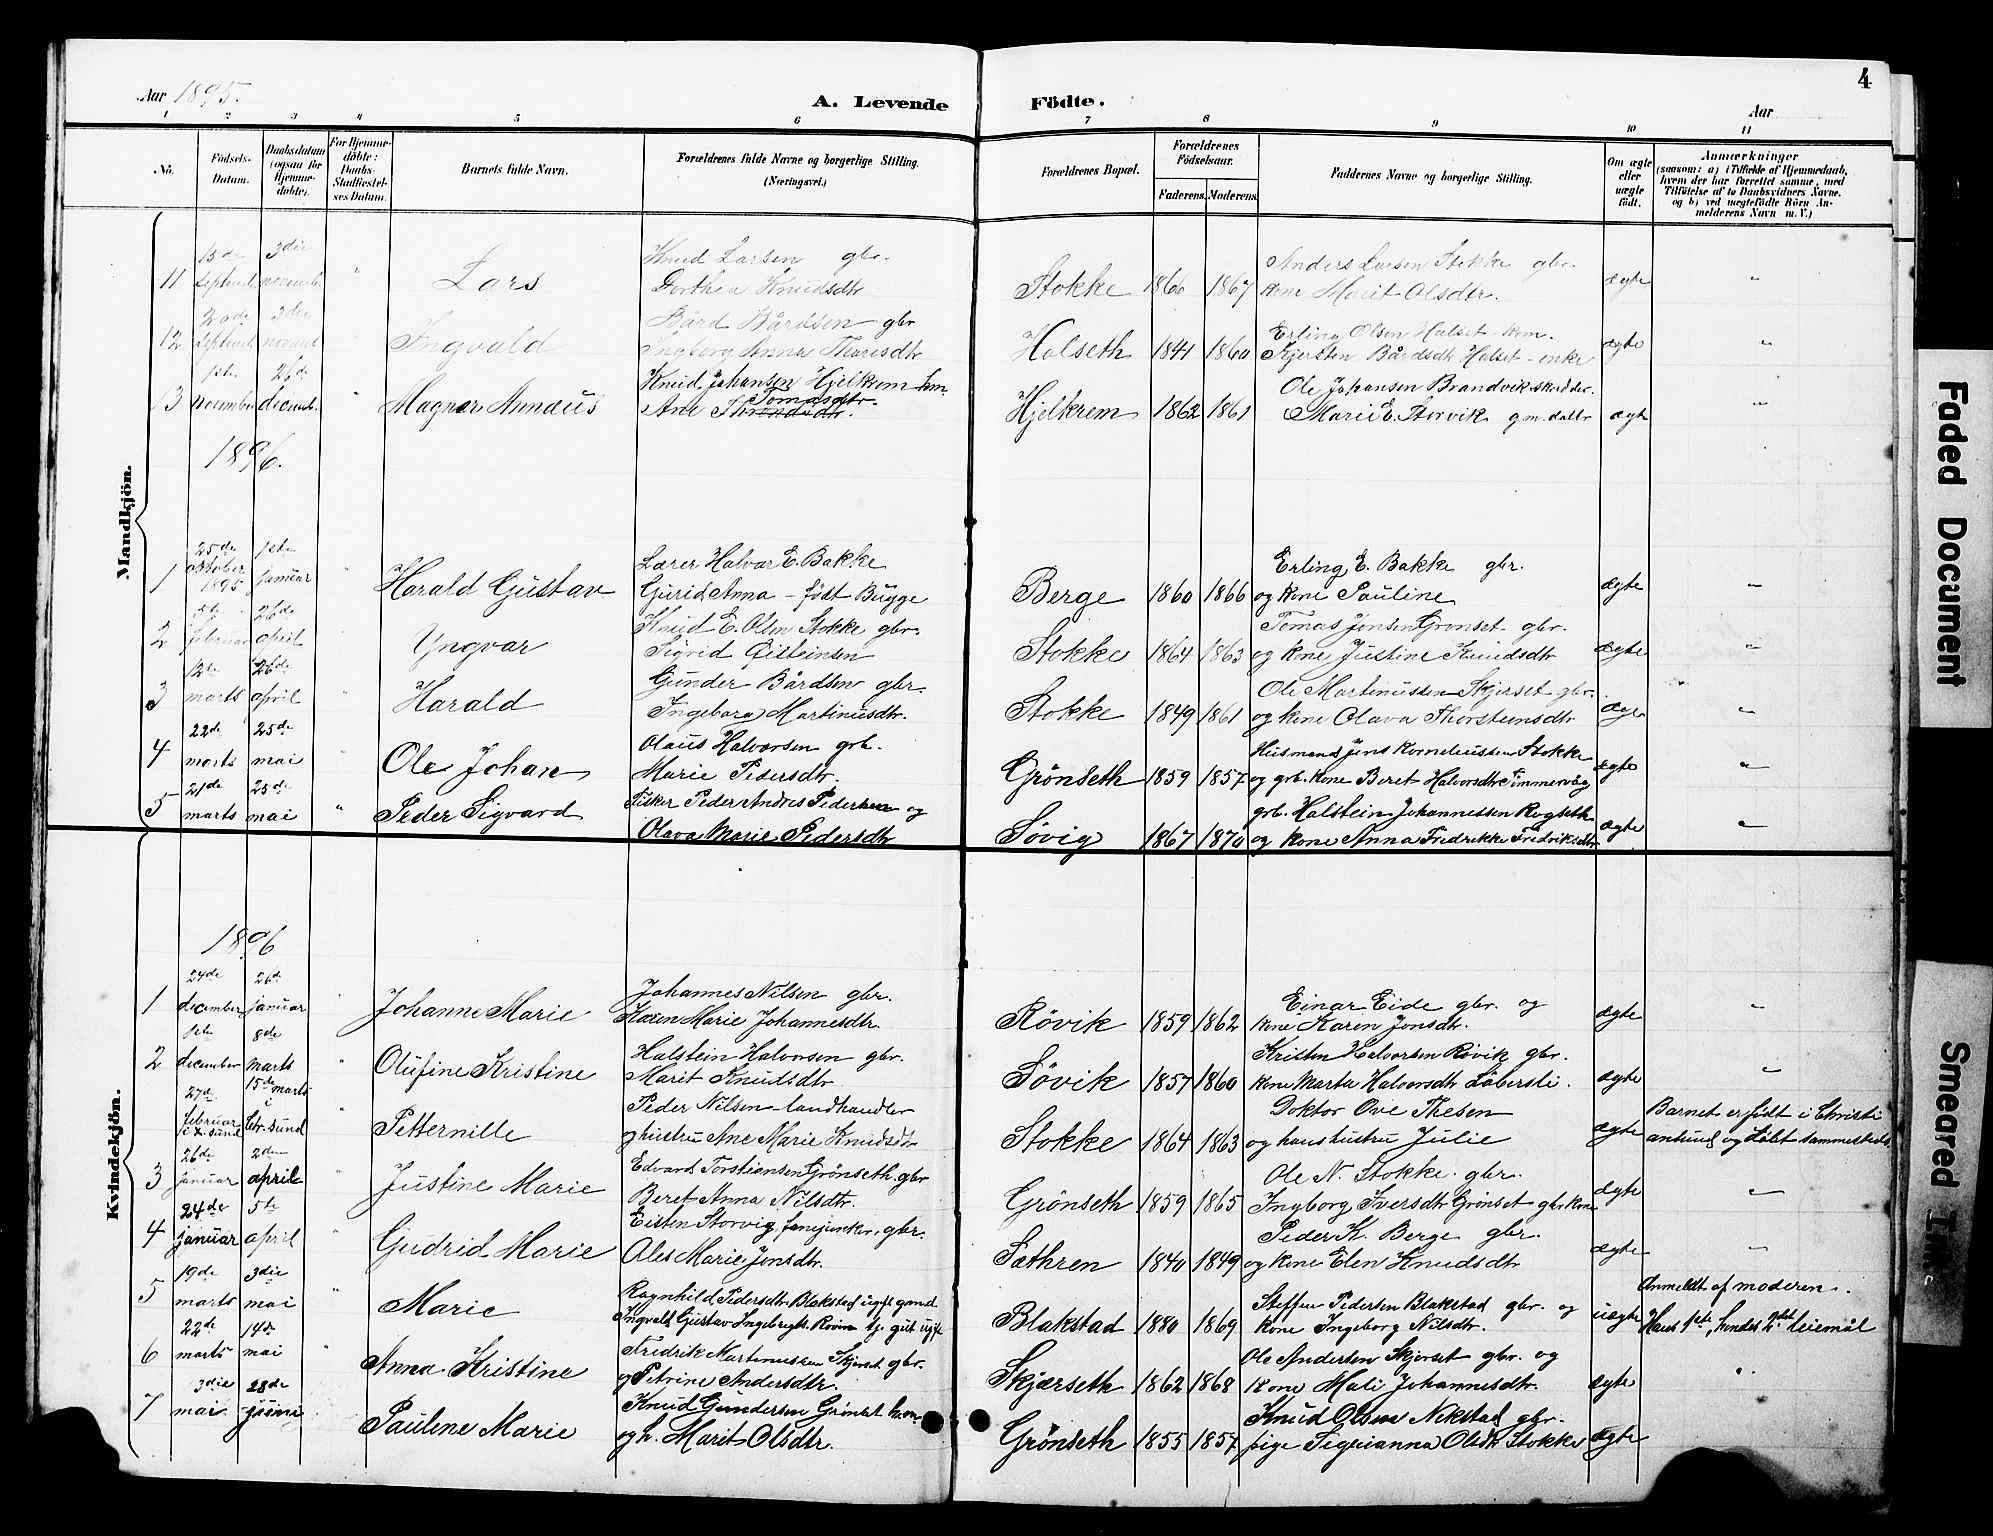 Aar 1895.
A. Levende Födte.
Aar
4
1 2 3 4 5 6 7 8 9 10 11
No.
Födsels-Datum.
Daabsdatum (ogsaa for Hjemme-döbte).
For Hjemme-döbte: Daabs-Stadfæstel-ses Datum.
Barnets fulde Navn.
Forældrenes fulde Navne og borgerlige Stilling.
(Næringsvei.)
Forældrenes Bopæl.
Forældrenes Födselsaar.
Faderens. Moderens.
Faddernes Navne og borgerlige Stilling.
Om ægte eller uægte födt.
Anmærkninger
(saasom: a) i Tilfælde af Hjemmedaab,
hvem der har forrettet samme, med
Tilföielse af to Daabsvidners Navne,
og b) ved uægtefödte Börn An-
melderens Navn m. V.)
Mandkjön.
13de 3die Knud Larsen gbr. Anders Larsen Stokke gbr.
11 septemb. novemb. " Lars Dorthea Knudsdtr Stokke 1866 1867 kone Marit Olsdtr. ægte "
20de 3die Bård Bårdsen gbr Erling Olsen Halset kom.
12 septemb novemb " Ingvald Ingborg Anna Thorisdtr Halseth 1841 1860 Kjersten Bårdsdtr Halset - enke ægte "
1ste 26de Knud Johansen Hjelkrem hm. Ole Johansen Brandvik skrædder.
13 november decemb. " Magnar Annæus Ane Throndsdtr. Tomasdtr. Hjelkrem 1862 1861 Marie E. Storvik g.m. datter ægte "
1896.
25de 1ste Lærer Halvar E. Bakke Erling E. Bakke gbr.
1 oktober 1895 januar " Harald Gustav Gurid Anna - født Bugge Berge 1860 1866 og kone Pauline ægte "
5te 26de Knud E. Olsen Stokke gbr. Tomas Jensen Grønset gbr.
2 februar april " Yngvar Sigrid Øisteinsen Stokke 1864 1863 og kone Justine Knudsdtr ægte "
12te 26de Gunder Bårdsen gbr. Ole Martinussen Skjerset gbr.
3 marts april " Harald Ingeborg Martinusdtr. Stokke 1849 1861 og kone Olava Thorsteinsdtr ægte "
22de 25de Olaus Halvorsen grb. Husmand Jens Korneliussen Stokke
4 marts mai " Ole Johan Marie Pedersdtr. Grönseth 1859 1857 og grb. kone Beret Halvorsdtr Simmervåg ægte "
21de 25de Fisker Peder Andres Pedersen og grb. Halstein Johannessen Rogseth
5 marts mai " Peder Sigvard Olava Marie Pedersdtr Søvig 1867 1870 og kone Anna Fredrikke Fredriksdtr ægte "
Kvindekjön.
1896
24de 26de Johannes Nilsen gbr. Einar Eide gbr. og
1 december januar " Johanne Marie Karen Marie Johannesdtr. Røvik 1859 1862 kone Karen Jonsdtr. ægte "
1ste 8de Halstein Halvorsen gbr. Kristen Halvorsen Røvik gbr.
2 december marts " Olufine Kristine Marit Knudsdtr Søvik 1857 1860 kone Marta Halvorsdtr Låbersli. ægte "
27de 15de marts Peder Nilsen - landhandler Doktor Ove Thesen Barnet er født i Christi
februar i K.sund i Chr.sund " Petternille og hustru Ane Marie Knudsdtr Stokke 1864 1863 og hans hustru Julie ægte ansund og døbt sammesteds
26de 2den Edvard Torstiansen Grönseth gbr Ole N. Stokke gbr.
3 januar april Justine Marie Beret Anna Nilsdtr. Grönseth 1859 1865 Ingborg Iversdtr Grönset gbr kone ægte "
24de 5te Eisten Storvig fanejunker, gbr. Peder K. Berge gbr.
4 januar april " Gudrid Marie Ales Marie Jonsdtr. Sæthren 1840 1849 og kone Elen Knudsdtr ægte "
19de 3die Ragnhild Pedersdtr Blakstad ugift gmd Steffen Pedersen Blakstad gbr. og Anmeldt af moderen.
5 marts mai " Marie Ingvald Gustav Ingebrigts. Røvik gut ugift Blakstad 1880 1869 kone Ingeborg Nilsdtr. uægte Hans 1ste, hendes 2det leiemål
22de 14de Fredrik Martinussen Skjerset gbr. Ole Andersen Skjerset gbr. og
6 marts mai " Anna Kristine og Petrine Andersdtr. Skjærseth 1862 1868 kone Mali Johannesdtr. ægte "
13die 28de Knud Gundersen Grönset hm Knud Olsen Nekstad gbr.
7 mai juni Pauline Marie og h. Marit Olsdtr. Grönseth 1855 1857 pige Sigrianna Olsdtr Stokke ægte
Faded Document
Smeared Ink.